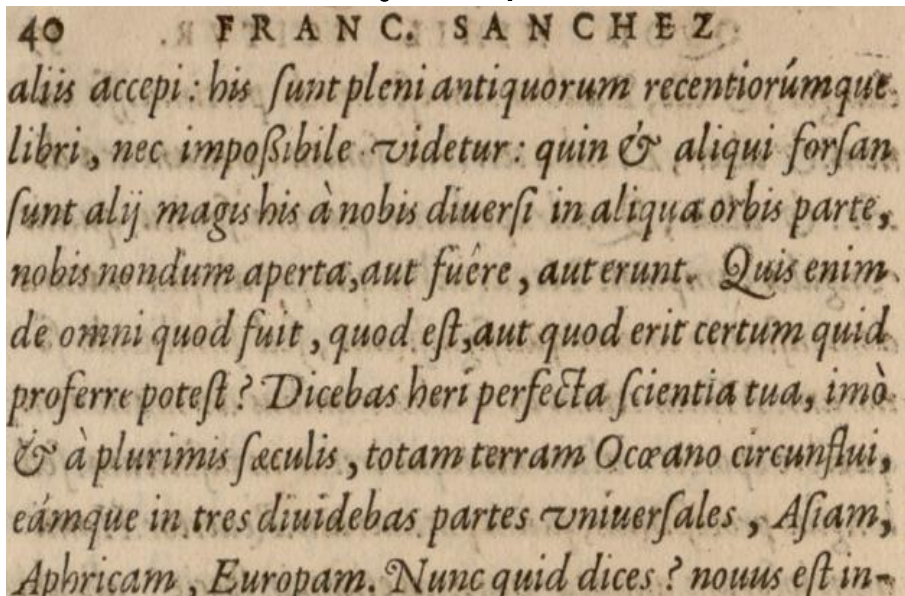 40 FRANC. SANCHEZ
aliis accepi : his ſunt pleni antiquorum recentiorúmque
libri, nec impoßibile videtur : quin & aliqui forſan
ſunt alij magis his à nobis diuerſi in aliqua orbis parte,
nobis nondum aperta, aut fuêre, aut erunt. Quis enim
de omni quod fuit, quod eſt, aut quod erit certum quid
proferre poteſt ? Dicebas heri perfecta ſcientia tua, imò
& à plurimis ſæculis, totam terram Ocœano circunflui,
eámque in tres diuidebas partes vniuerſales, Aſiam,
Aphricam, Europam. Nunc quid dices ? nouus eſt in-